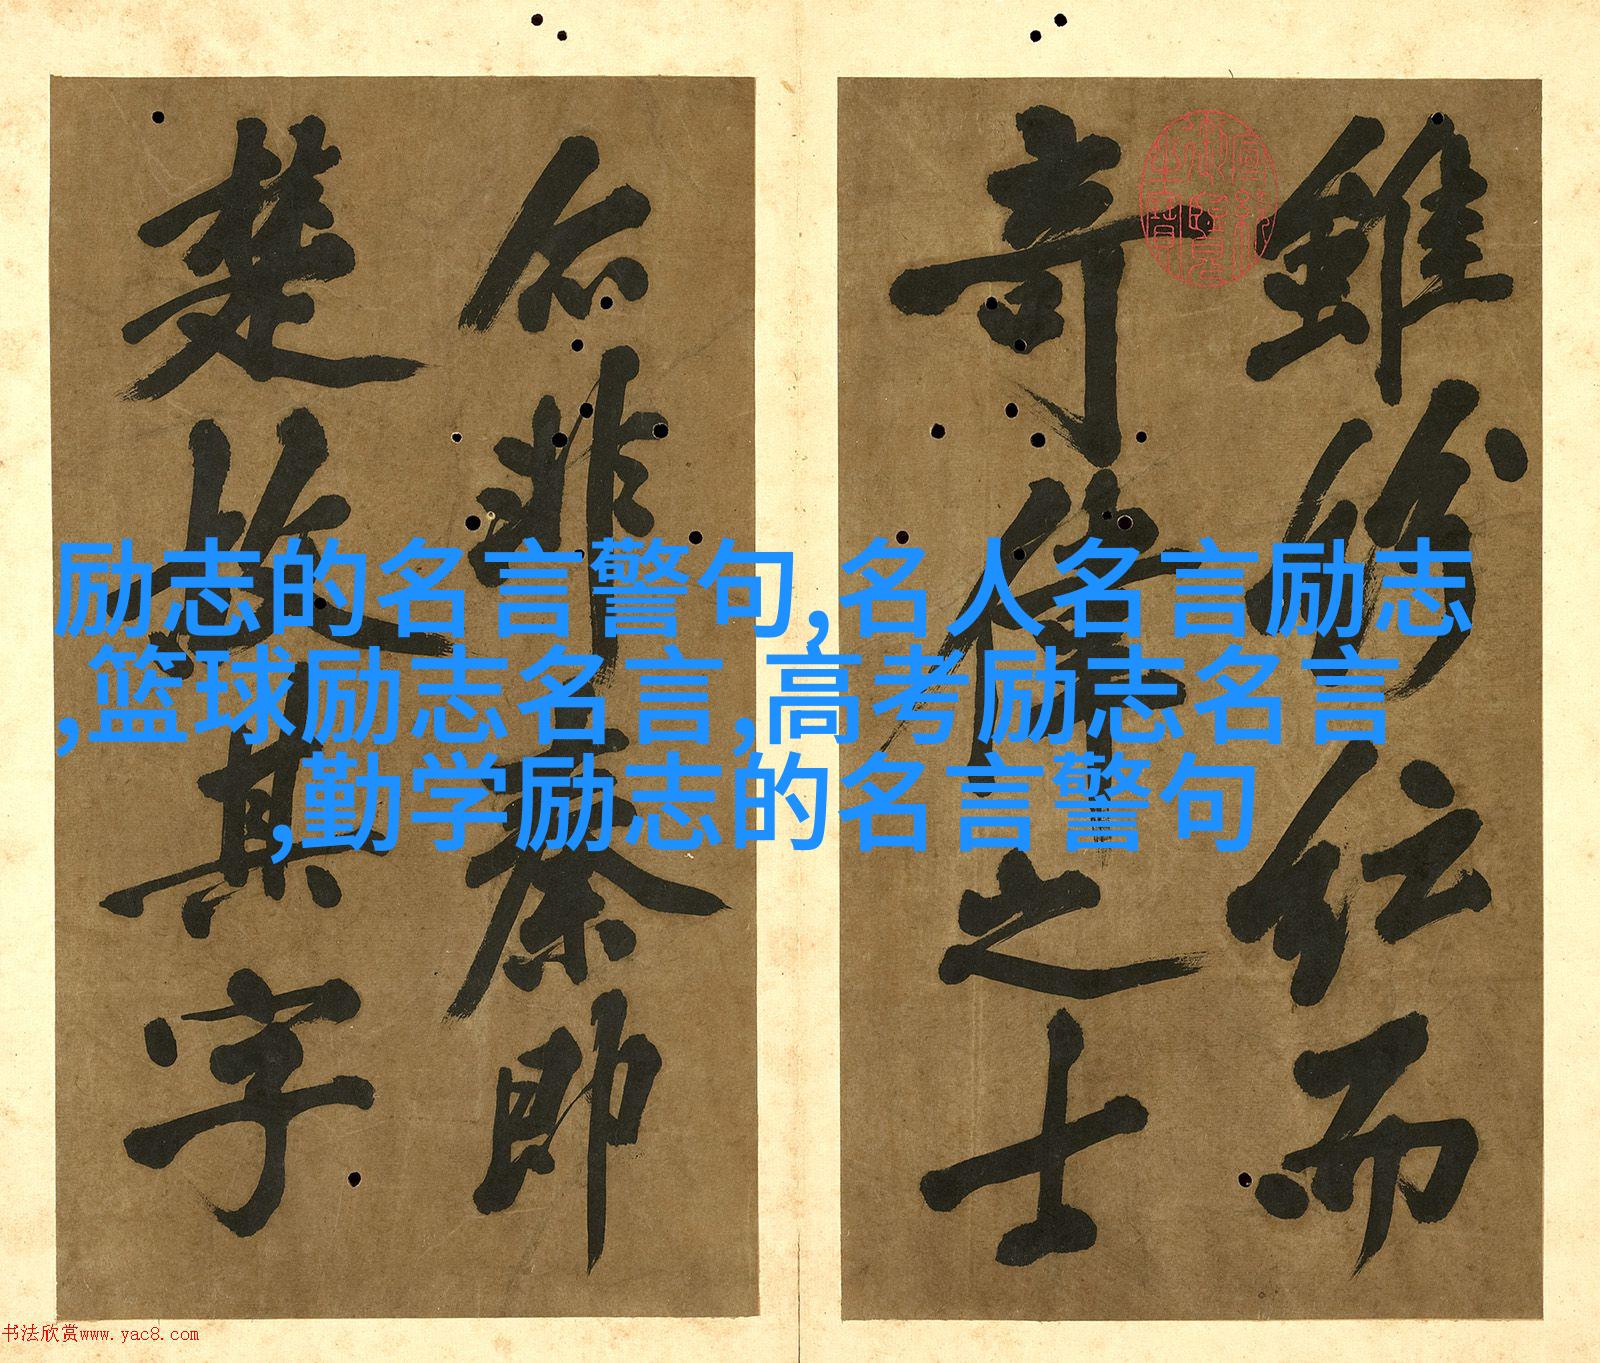 雖紛紜而
奇偉之士
非秦即
楚故其字
励志的名言警句,名人名言励志
,篮球励志名言,高考励志名言
,勤学励志的名言警句
书法欣赏www.yac8.com